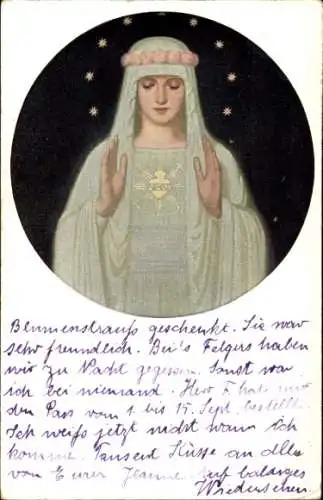 Blumenstrauß geschenkt. Sie war
sehr freundlich. Bei's Felgers haben
wir zu Nacht gegessen. Sonst war
ich bei niemand. Herr F. hat mir
den Pass vom 1. bis 15. Sept. bestellt.
Ich weiß jetzt nicht wann ich
komme. Tausend Küsse an alle
von Eurer Jeanne. Auf baldiges
Wiedersehen